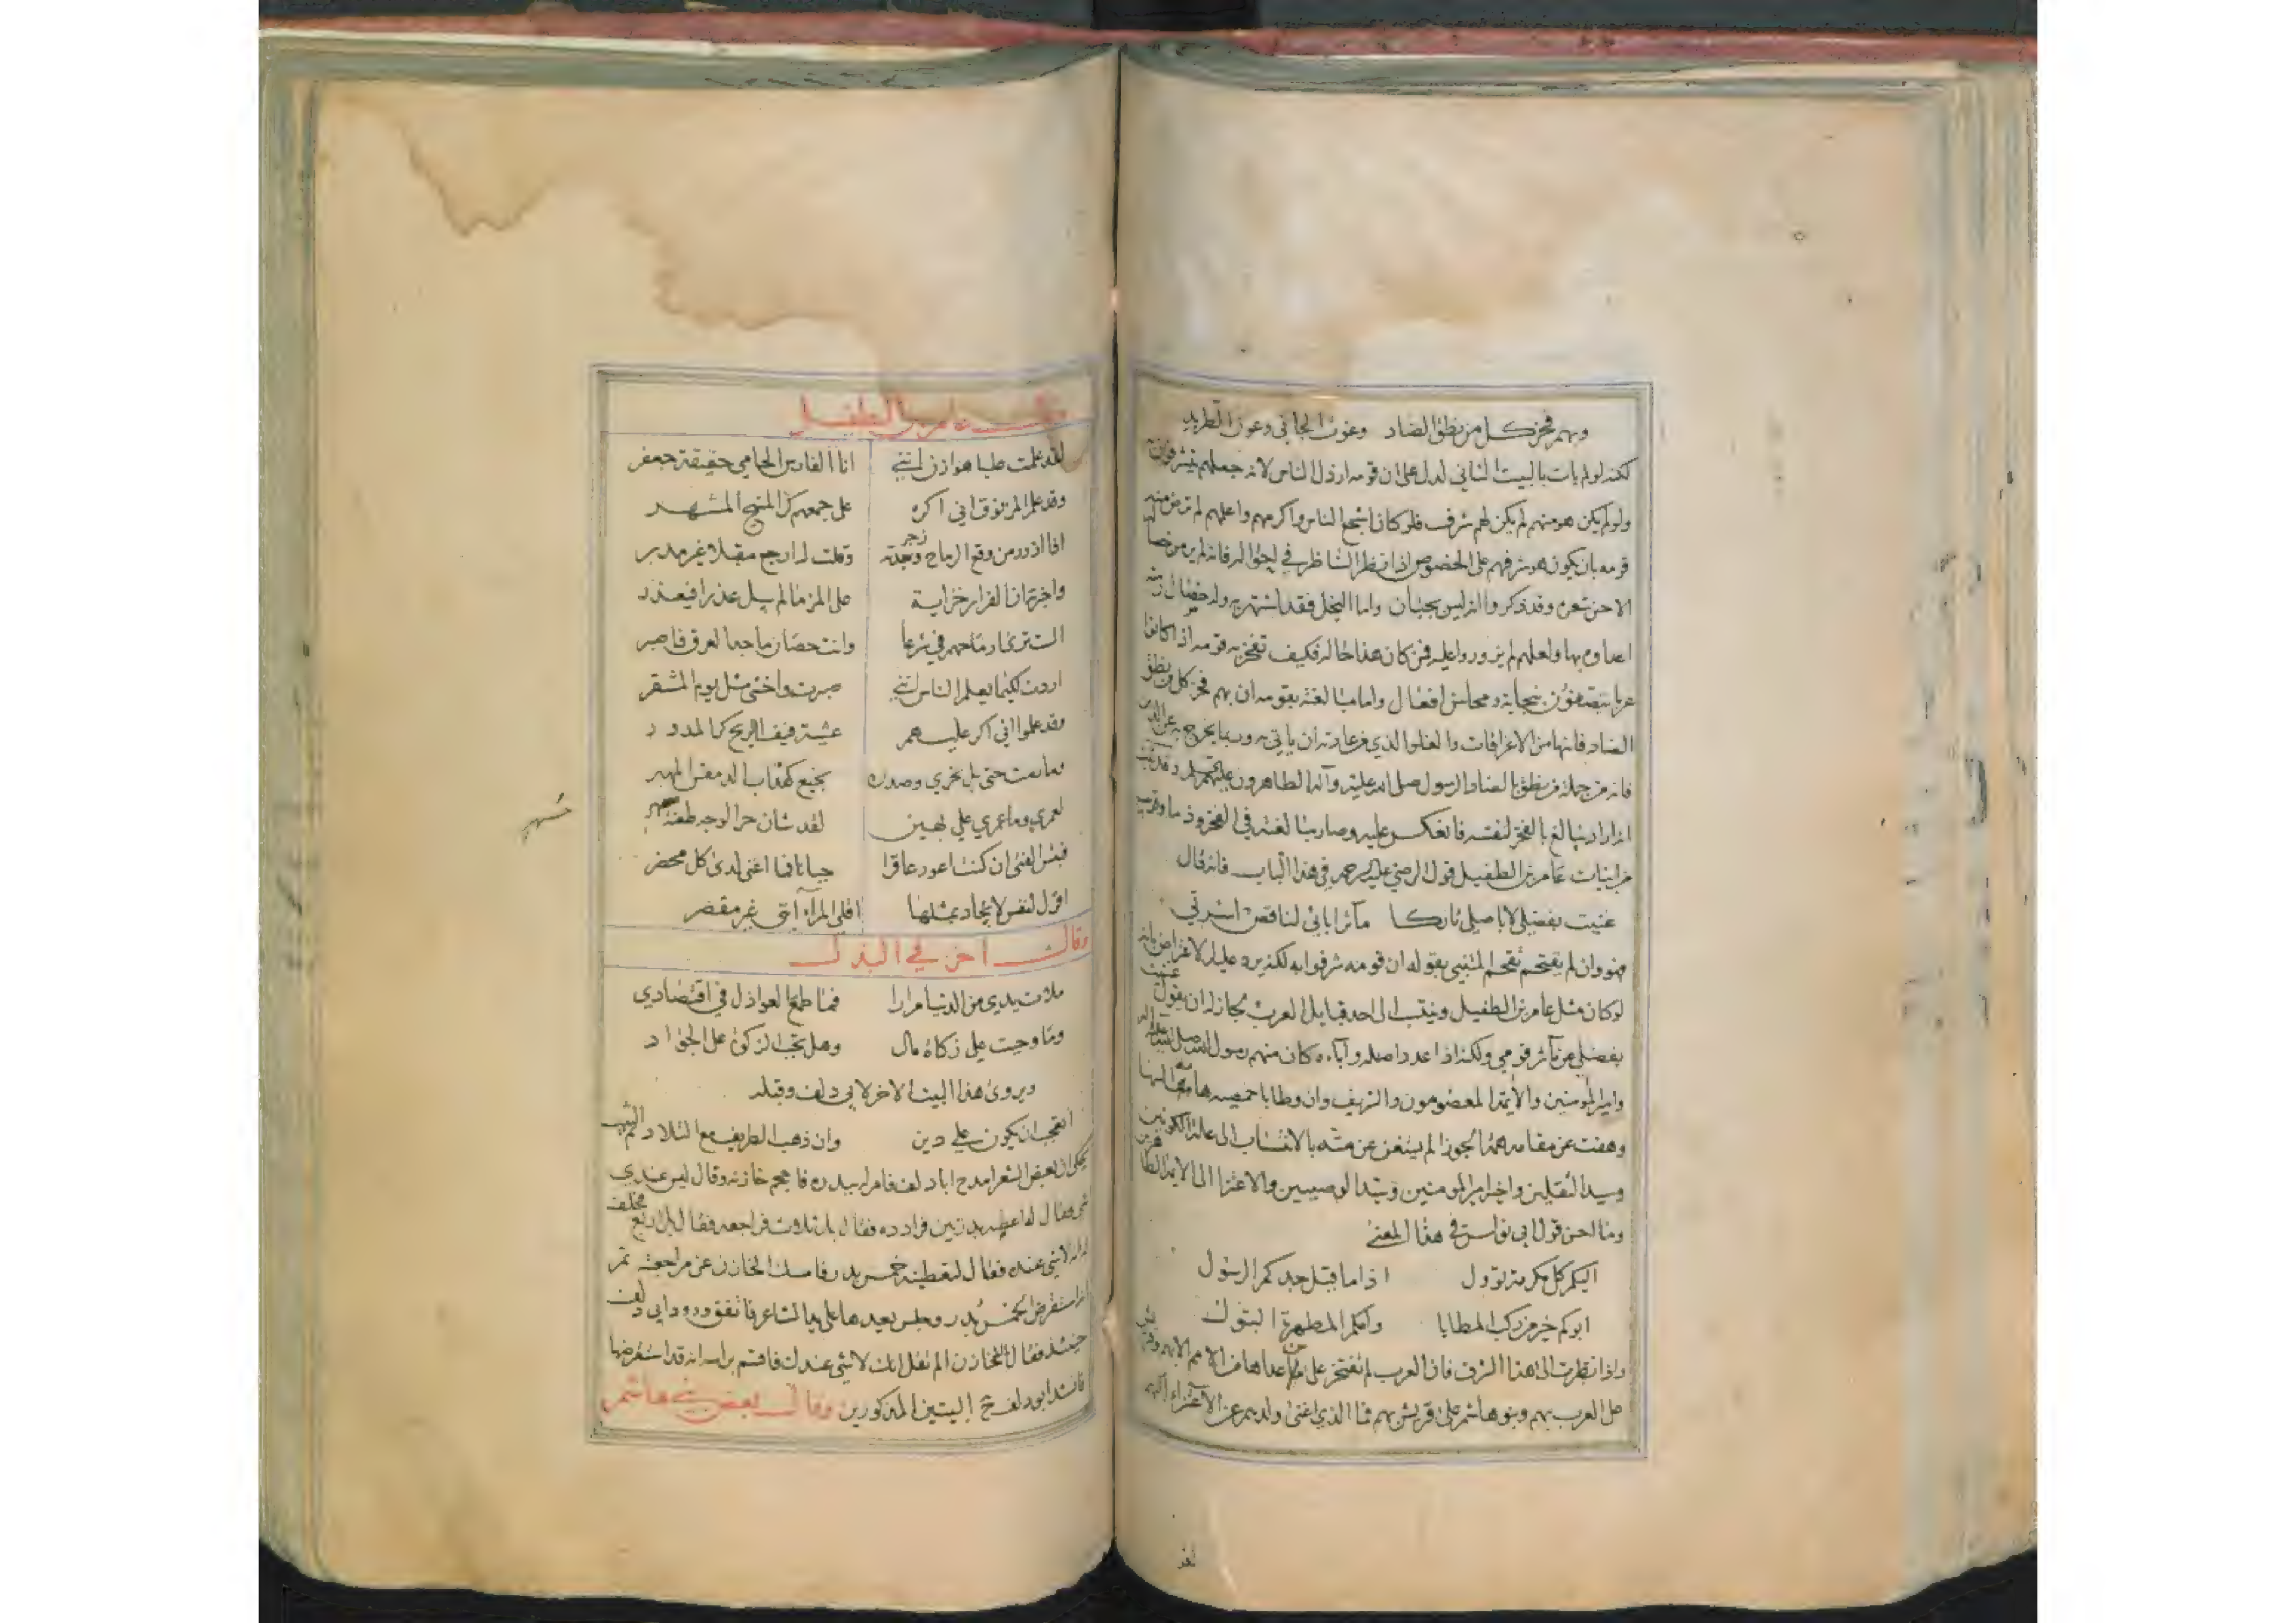 وبهم فخر كل من نطق الضاد وغوث الجاني وعوذ الطريد
لكنه لو لم يات بالبيت الثاني لدل على ان قومه ارذل الناس لانه جعلهم يتشرفون به
ولو لم يكن هو منهم لم يكن لهم شرف فلو كان اشجع الناس واكرمهم واعلمهم لم ترض منه
قومه بان يكون هو شرفهم على الخصوص اذا نظر الناظر في احواله فانه لم ير من خصاله
الاحسن شعره وقد ذكروا انه ليس بجبان واما البخل فقد اشتهر به وله خصال رثه
اعداؤه بها ولعلهم لم يزوروا عليه فمن كان هذا حاله فكيف تفخر به قومه اذا كانوا
عربا يتصفون بنجابة ومحاسن افعال واما مبالغته بقومه ان بهم فخر كل من نطق
الضاد فانها من الاغراقات والغلو الذي من عادته ان ياتي به وربما يخرج به عن الدين
فانه من جملة من نطق بالضاد الرسول صلى الله عليه وآله الطاهرون
اراد ان يبالغ بالفخر لنفسه فانعكس عليه وصار مبالغته في الفخر وذما وقريب
من ابيات عامر بن الطفيل قول الرضي عليه الرحمة في هذا الباب فانه قال
غنيت بفضلي لا باصلي تاركا مآثر آبائي لناقص اسرتي
فهو وان لم يقتحم تقحم المتنبي بقوله ان قومه شرفوا به لكنه يرد عليه الاعتراض بانه
لو كان مثل عامر بن الطفيل وينتسب الى احد قبايل العرب لجاز له ان يقول غنيت
بفضلي عن مآثر قومي ولكنه اذا عدد اصله وآباءه كان منهم رسول الله صلى الله عليه وآله
وامير المؤمنين والائمة المعصومون والشريف وان وطا باخمصيه هامة السها
وهفت عن مقامه همة الجوزا لم يستغن عن مته بالانتساب الى علة الكونين
وسيد الثقلين واخ امير المومنين وسيد الوصيين والاعتزا الى الائمة الطاهرين
وما احسن قول ابي نواس في هذا المعنى
اليكم كل مكرمة تؤول اذا ما قيل جدكم الرسول
ابوكم خير من ركب المطايا وامكم المطهرة البتول
واذا نظرت الى هذا الشرف فان العرب لم تفتخر على من عداها من الامم الا به وقريش
على العرب بهم وبنو هاشم على قريش بهم فما الذي اغنى ولدهم عن الاعتزاء اليهم
لغد
وقال عامر بن الطفيل
لقد علمت عليا هوازن انني انا الفارس الحامي حقيقة جعفر
وقد علم المزنوق اني اكره على جمعهم كر المنيح المشهر
اذا ازور من وقع الرماح زجرته وقلت له ارجع مقبلا غير مدبر
واخبرته ان الفرار خزاية على المرء ما لم يبل عذرا فيعذر
الست ترى ارماحهم في شرعا وانت حصان ماجد العرق فاصبر
اردت لكيما يعلم الناس انني صبرت واخشى مثل يوم المشقر
وقد علموا اني اكر عليهم عشية فيف الريح كر المدور
وما رمت حتى بل نحري وصدره نجيع كهداب الدمقس المهبر
لعمري وما عمري علي بهين لقد شان حر الوجه طعنة مسهر
فبئس الفتى ان كنت اعور عاقرا جبانا فما اغنى لدى كل محضر
اقول لنفس لا يجاد بمثلها اقلي المراء انني غير مقصر
مسهر
وقال آخر في البذل
ملات يدي من الدنيا مرارا فما طمع العواذل في اقتصادي
وما وجبت علي زكاة مال وهل تجب الزكوة على الجواد
ويروى هذا البيت الاخر لابي دلف وقبله
اتعجب ان يكون علي دين وان ذهب الطريف مع التلاد
يحكى ان بعض الشعرا مدح ابا دلف فامر له ببدرة فاحجم خازنه وقال ليس عندي
شي فقال له اعطه بدرتين فراده فقال بل ثلاث فراجعه فقال بل اربع فحلف
انه لا شي عنده فقال لتعطينه خمس بدر فامسك الخازن عن مراجعته ثم
انه استقرض الخمس بدر وجلس يعيدها على يد الشاعر فاتفق ورود ابي دلف
حينئذ فقال للخازن الم تقل انك لا شي عندك فاقسم براسه انه قد استقرضها
فانشد ابو دلف البيتين المذكورين وقال بعض بني هاشم